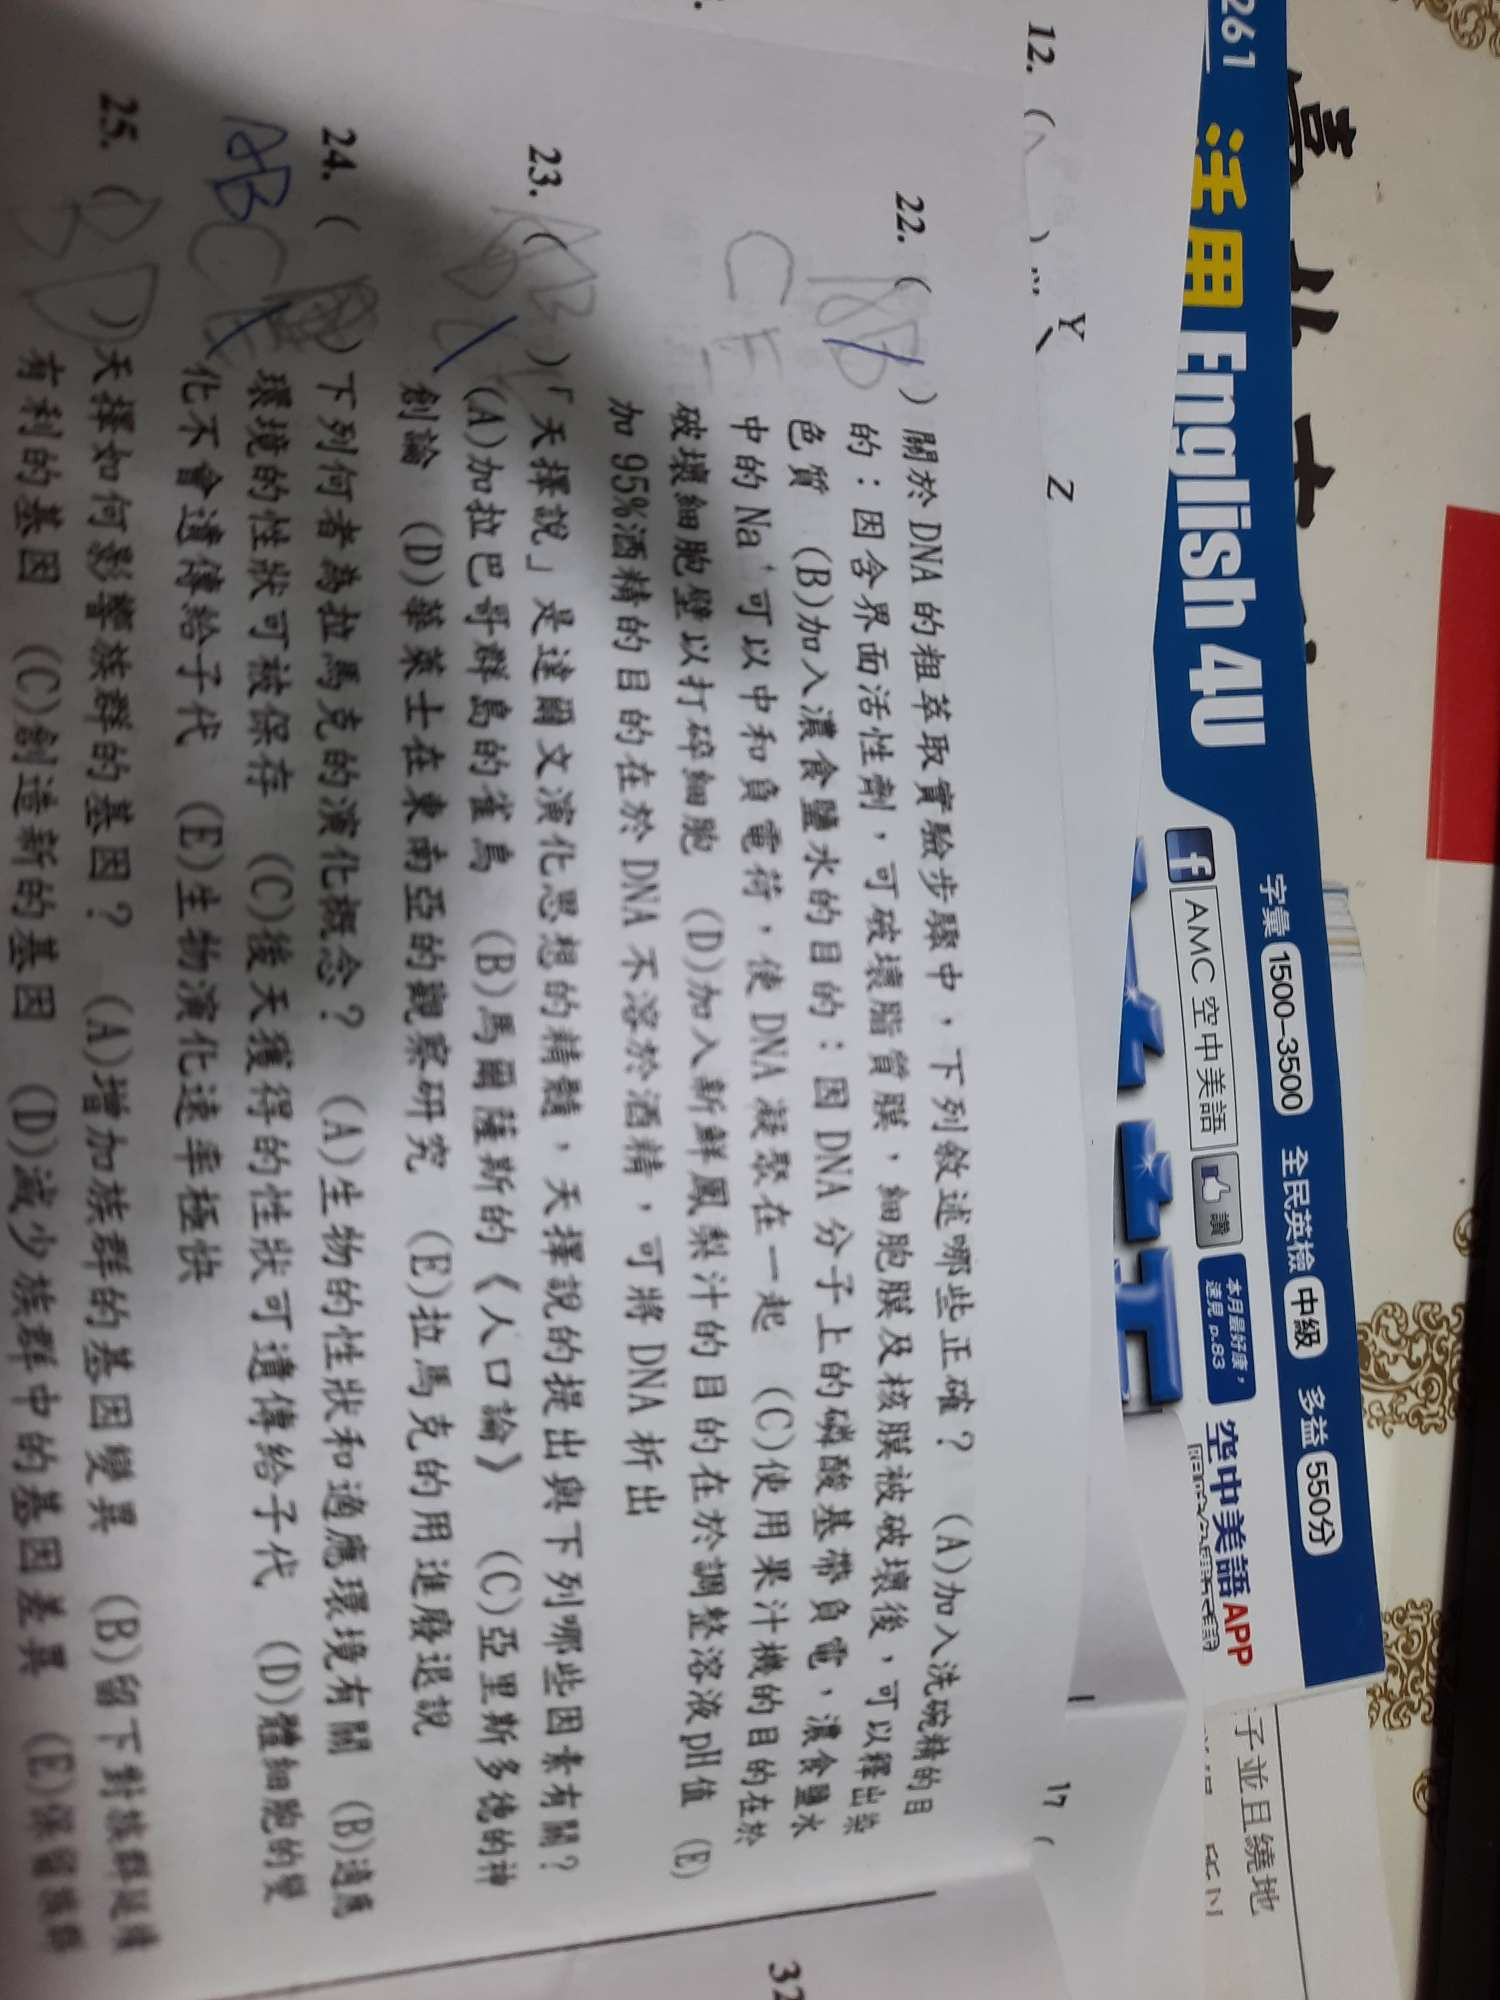 261 活用 English 4U
字彙 1500-3500 全民英檢 中級 多益 550分
f AMC 空中美語 讚 本月最好康,
速見 p.83
空中美語APP
子並且繞地
12. ( ) …
Y Z
17 (
32
22. ( ) 關於 DNA 的粗萃取實驗步驟中,下列敘述哪些正確? (A)加入洗碗精的目
的:因含界面活性劑,可破壞脂質膜、細胞膜及核膜被破壞後,可以釋出染
色質 (B)加入濃食鹽水的目的:因 DNA 分子上的磷酸基帶負電,濃食鹽水
中的 Na⁺可以中和負電荷,使 DNA 凝聚在一起 (C)使用果汁機的目的在於
破壞細胞壁以打碎細胞 (D)加入新鮮鳳梨汁的目的在於調整溶液 pH 值 (E)
加 95%酒精的目的在於 DNA 不溶於酒精,可將 DNA 析出
AB
C E
23. ( )「天擇說」是達爾文演化思想的精髓,天擇說的提出與下列哪些因素有關?
(A)加拉巴哥群島的雀鳥 (B)馬爾薩斯的《人口論》 (C)亞里斯多德的神
創論 (D)華萊士在東南亞的觀察研究 (E)拉馬克的用進廢退說
AB
24. ( )下列何者為拉馬克的演化概念? (A)生物的性狀和適應環境有關 (B)適應
環境的性狀可被保存 (C)後天獲得的性狀可遺傳給子代 (D)體細胞的變
化不會遺傳給子代 (E)生物演化速率極快
ABC
25. ( )天擇如何影響族群的基因? (A)增加族群的基因變異 (B)留下對族群延續
有利的基因 (C)創造新的基因 (D)減少族群中的基因差異 (E)保留族群
BD